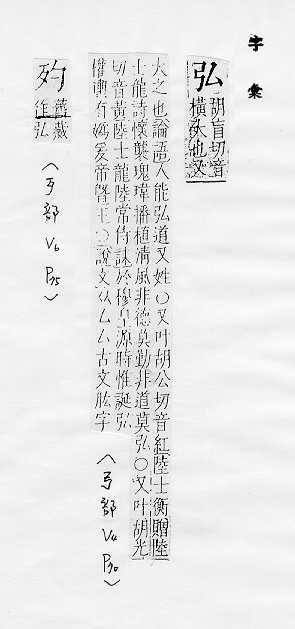 字彙
弘
胡盲切音
橫大也又
大之也論語人能弘道又姓○又叶胡公切音紅陸士衡贈陸
士龍詩懷襲瑰瑋播植清風非德莫勤非道莫弘○又叶胡光
切音黃陸士龍陸常侍誄於穆皇源時惟誕弘
權輿有嬀爰帝暨王○說文从厶厶古文肱字
〈弓部 V4 P30〉
舊藏
作弘
〈歹部 V6 P75〉